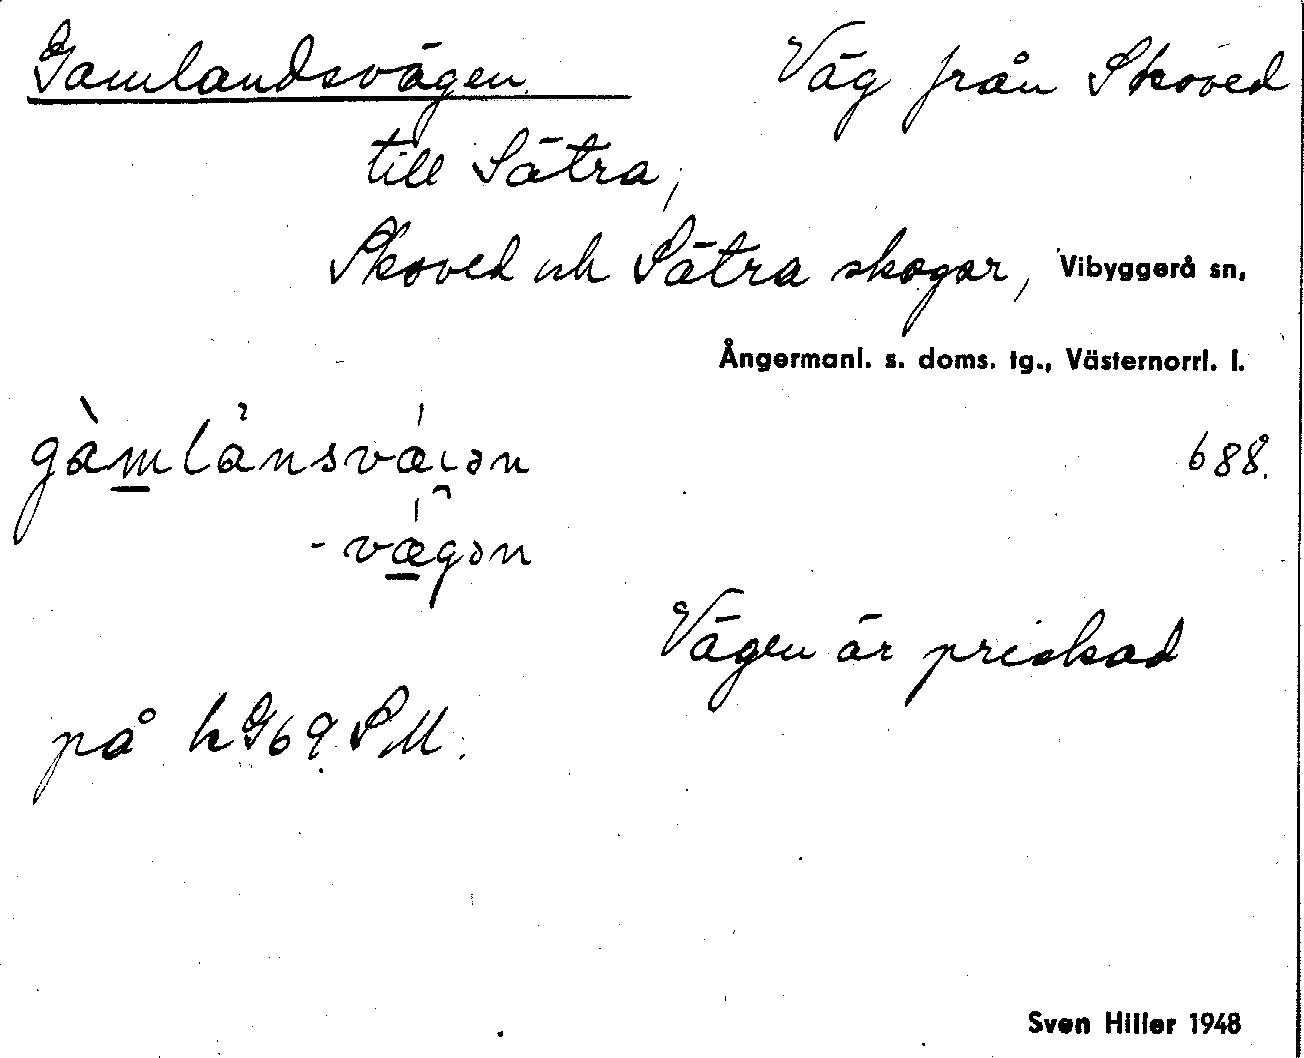 Gamlandsvägen. Väg från Skoved
till Sätra,
Skoved och Sätra skogar, Vibyggerå sn,
Ångermanl. s. doms. tg., Västernorrl. l.
688.
-vægən
Vägen är prickad
på kG69SM.
Sven Hiller 1948